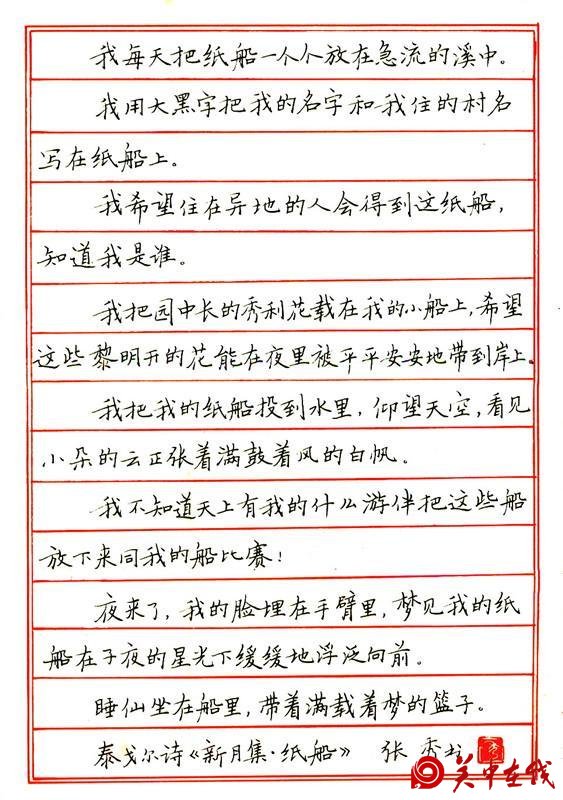 我每天把纸船一个个放在急流的溪中。
我用大黑字把我的名字和我住的村名
写在纸船上。
我希望住在异地的人会得到这纸船，
知道我是谁。
我把园中长的秀利花载在我的小船上，希望
这些黎明开的花能在夜里被平平安安地带到岸上。
我把我的纸船投到水里，仰望天空，看见
小朵的云正张着满鼓着风的白帆。
我不知道天上有我的什么游伴把这些船
放下来同我的船比赛！
夜来了，我的脸埋在手臂里，梦见我的纸
船在子夜的星光下缓缓地浮泛向前。
睡仙坐在船里，带着满载着梦的篮子。
泰戈尔诗《新月集·纸船》 张秀
关中在线